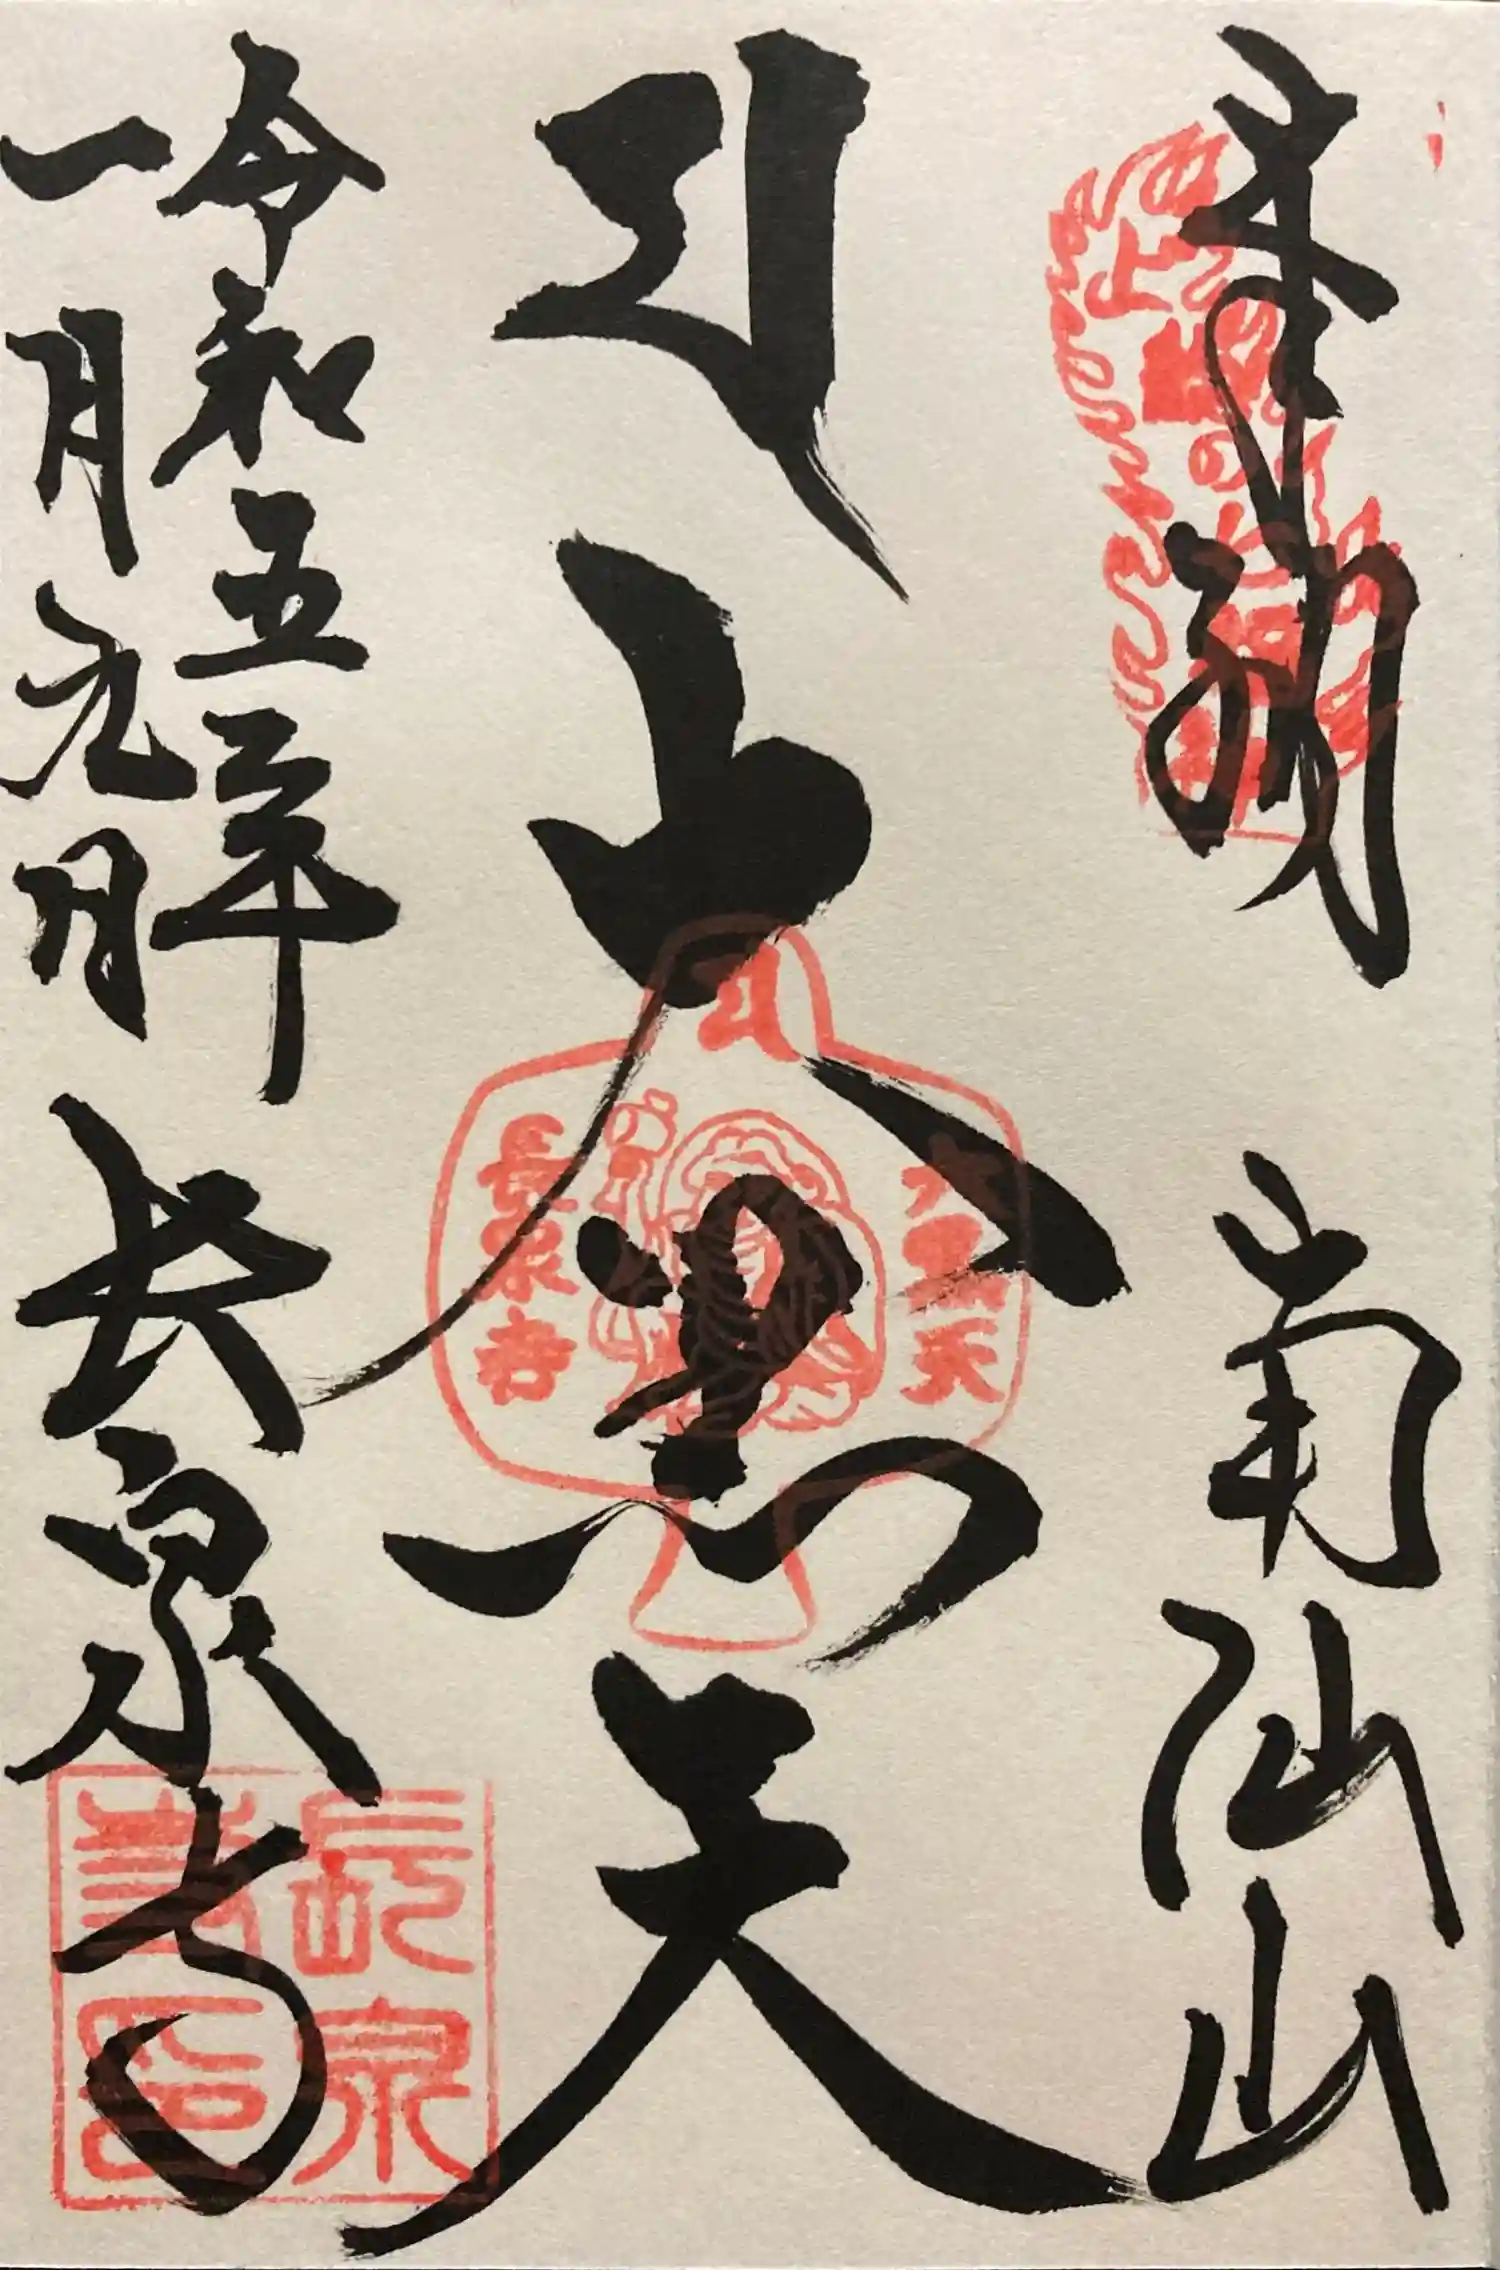 奉納 南仙山
大黒天
令和五年
一月九日 長泉寺
大黒天
長泉寺
長泉
寺印